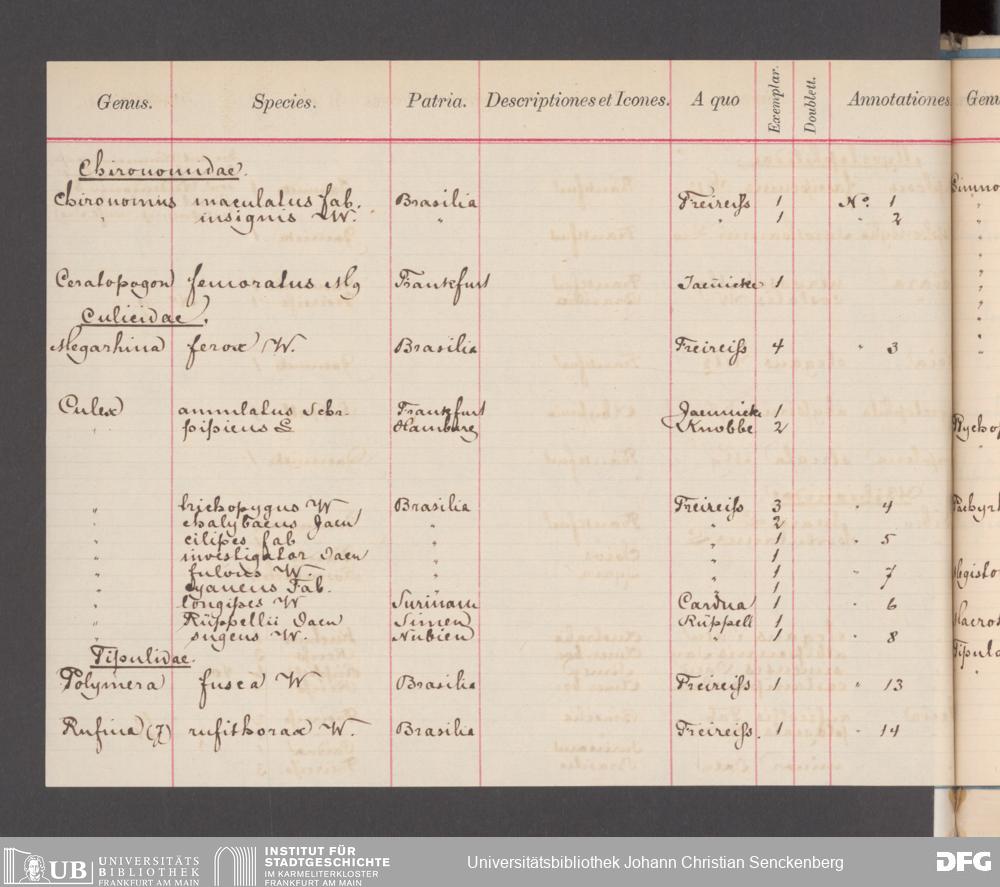 Genus. Species. Patria. Descriptiones et Icones. A quo Exemplar. Doublett. Annotationes. Genu
Chironomidae.
Chironomus maculatus Fab. Brasilia Freireiss 1 No. 1
" insignis W. " " 1 " 2
Ceratopogon femoratus Mg Frankfurt Jaennicke 1
Culicidae.
Megarhina ferox W. Brasilia Freireiss 4 " 3
Culex annulatus Schr. Frankfurt Jaennicke 1
" pipiens L Hamburg Knobbe 2
" trichopygus W Brasilia Freireiss 3 " 4
" chalybaeus Jaen " " 2
" cilipes Fab " " 1 " 5
" investigator Jaen " " 1
" fulvus W. " " 1 " 7
" cyaneus Fab. " 1
" longipes W Surinam Cardua 1 " 6
" Rüppellii Jaen Simen Rüppell 1
" sugens W. Nubien " 1 " 8
Tipulidae.
Polymera fusca W Brasilia Freireiss 1 " 13
Rufina (?) rufithorax W. Brasilia Freireiss. 1 " 14
UB UNIVERSITÄTS
BIBLIOTHEK
FRANKFURT AM MAIN
INSTITUT FÜR
STADTGESCHICHTE
IM KARMELITERKLOSTER
FRANKFURT AM MAIN
Universitätsbibliothek Johann Christian Senckenberg
DFG